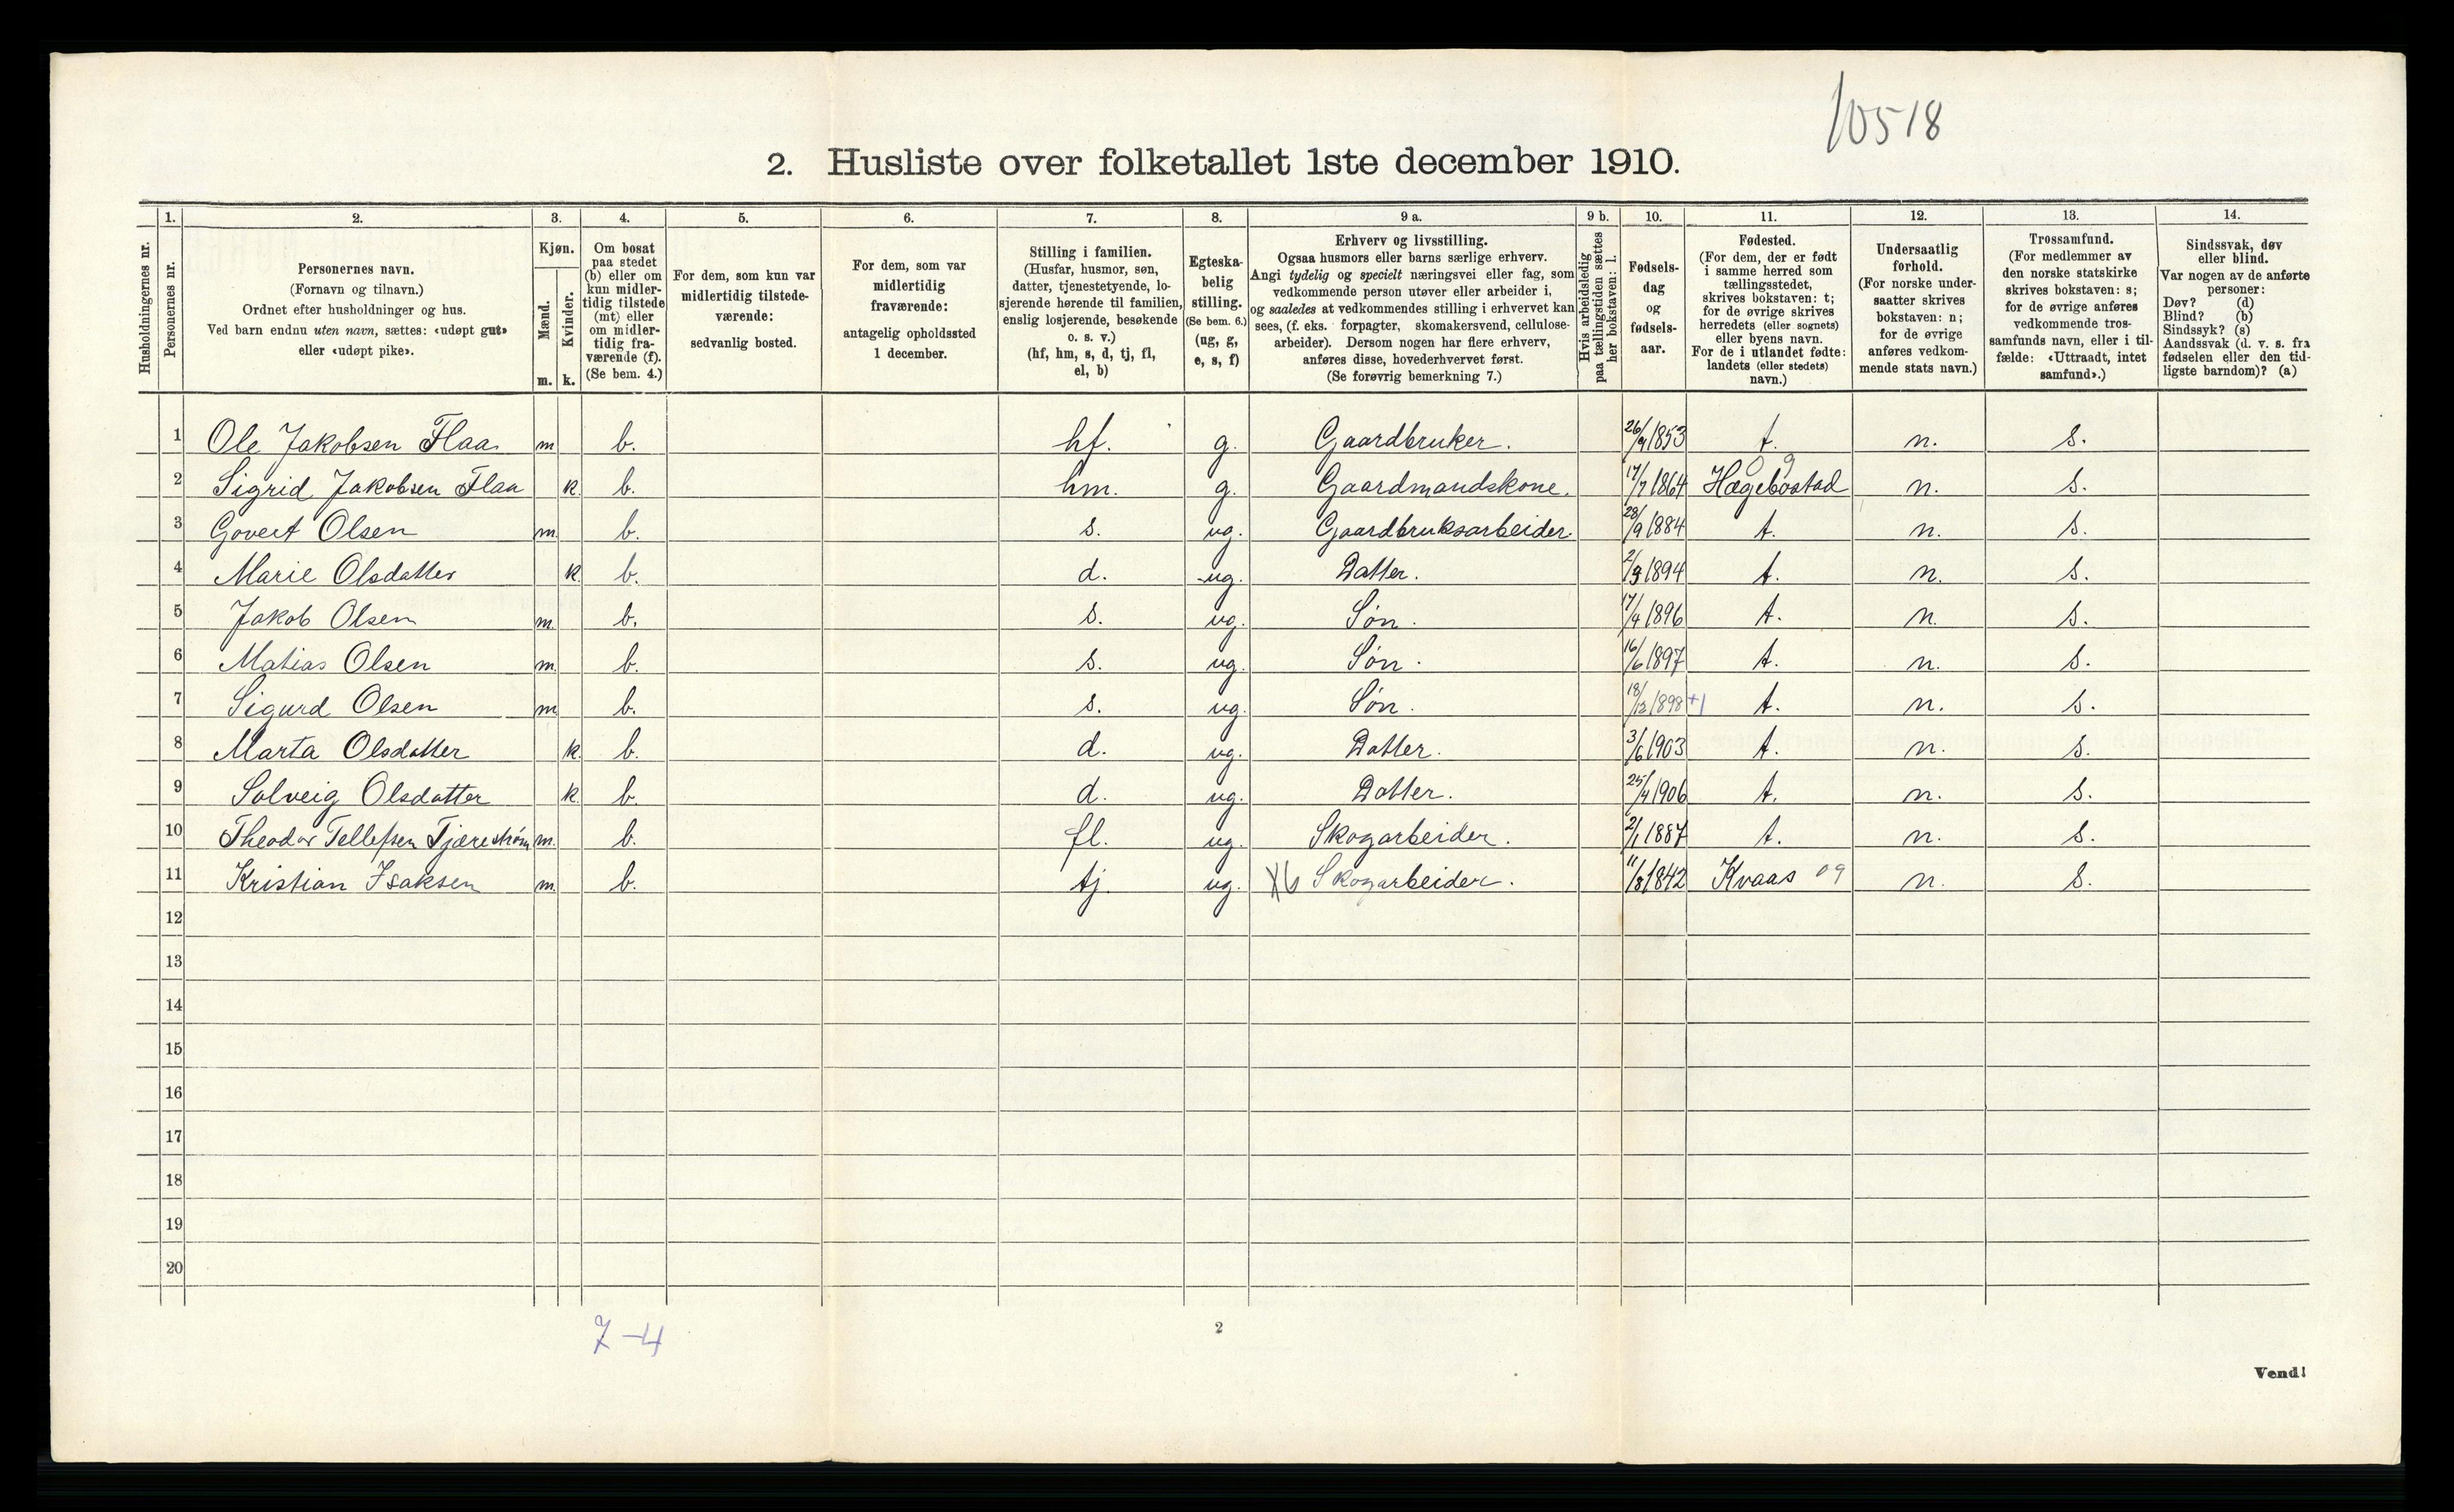 10518
2. Husliste over folketallet 1ste december 1910.
Husholdningernes nr.
1.
Personernes nr.
2.
Personernes navn.
(Fornavn og tilnavn.)
Ordnet efter husholdninger og hus.
Ved barn endnu uten navn, sættes: «udøpt gut»
eller «udøpt pike».
3.
Kjøn.
Mænd.
Kvinder.
m. k.
4.
Om bosat
paa stedet
(b) eller om
kun midler-
tidig tilstede
(mt) eller
om midler-
tidig fra-
værende (f).
(Se bem. 4.)
5.
For dem, som kun var
midlertidig tilstede-
værende:
sedvanlig bosted.
6.
For dem, som var
midlertidig
fraværende:
antagelig opholdssted
1 december.
7.
Stilling i familien.
(Husfar, husmor, søn,
datter, tjenestetyende, lo-
sjerende hørende til familien,
enslig losjerende, besøkende
o. s. v.)
(hf, hm, s, d, tj, fl,
el, b)
8.
Egteska-
belig
stilling.
(Se bem. 6.)
(ug, g,
e, s, f)
9 a.
Erhverv og livsstilling.
Ogsaa husmors eller barns særlige erhverv.
Angi tydelig og specielt næringsvei eller fag, som
vedkommende person utøver eller arbeider i,
og saaledes at vedkommendes stilling i erhvervet kan
sees, (f. eks. forpagter, skomakersvend, cellulose-
arbeider). Dersom nogen har flere erhverv,
anføres disse, hovederhvervet først.
(Se forøvrig bemerkning 7.)
9 b.
Hvis arbeidsledig
paa tællingstiden sættes
her bokstaven: l.
10.
Fødsels-
dag
og
fødsels-
aar.
11.
Fødested.
(For dem, der er født
i samme herred som
tællingsstedet,
skrives bokstaven: t;
for de øvrige skrives
herredets (eller sognets)
eller byens navn.
For de i utlandet fødte:
landets (eller stedets)
navn.)
12.
Undersaatlig
forhold.
(For norske under-
saatter skrives
bokstaven: n;
for de øvrige
anføres vedkom-
mende stats navn.)
13.
Trossamfund.
(For medlemmer av
den norske statskirke
skrives bokstaven: s;
for de øvrige anføres
vedkommende tros-
samfunds navn, eller i til-
fælde: «Uttraadt, intet
samfund».)
14.
Sindssvak, døv
eller blind.
Var nogen av de anførte
personer:
Døv? (d)
Blind? (b)
Sindssyk? (s)
Aandssvak (d. v. s. fra
fødselen eller den tid-
ligste barndom)? (a)
1 Ole Jakobsen Flaa m b. hf. g. Gaardbruker. 26/9 1853 t. n. s.
2 Sigrid Jakobsen Flaa k. b. hm. g. Gaardmandskone. 17/7 1864 Hægebostad 09 n. s.
3 Govert Olsen m. b. s. ug. Gaardbruksarbeider 28/9 1884 t. n. s.
4 Marie Olsdatter k b. d. ug. Datter. 2/3 1894 t. n. s.
5 Jakob Olsen m. b. s. ug. Søn. 17/4 1896 t. n. s.
6 Matias Olsen m. b. s. ug. Søn. 16/6 1897 t. n. s.
7 Sigurd Olsen m. b. s. ug. Søn. 18/12 1898 +1 t. n. s.
8 Marta Olsdatter k. b. d. ug. Datter. 3/6 1903 t. n. s.
9 Solveig Olsdatter k. b. d. ug. Datter. 25/4 1906 t. n. s.
10 Theodor Tellefsen Tjærestrøm m. b. fl. ug. Skogarbeider. 2/1 1887 t. n. s.
11 Kristian Isaksen m. b. tj. ug. X6 Skogarbeider. 11/8 1842 Kvaas 09 n. s.
12
13
14
15
16
17
18
19
20
7-4
2
Vend!